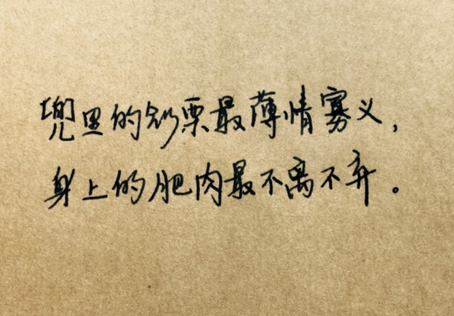 兜里的钞票最薄情寡义，
身上的肥肉最不离不弃。